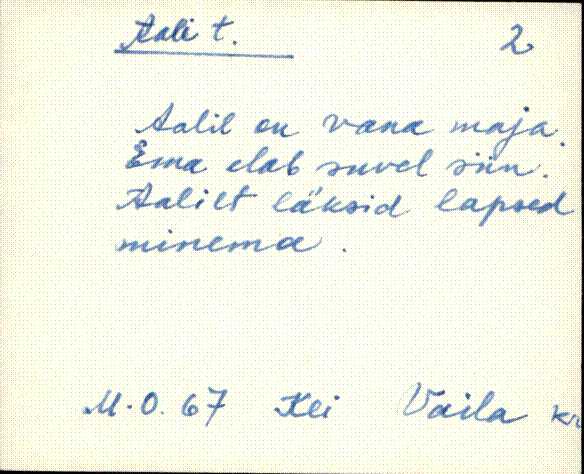 Aali t. 2
Aalil on vana maja.
Ema elab suvel siin.
Aalilt läksid lapsed
minema.
M.O. 67 Kei Vaila